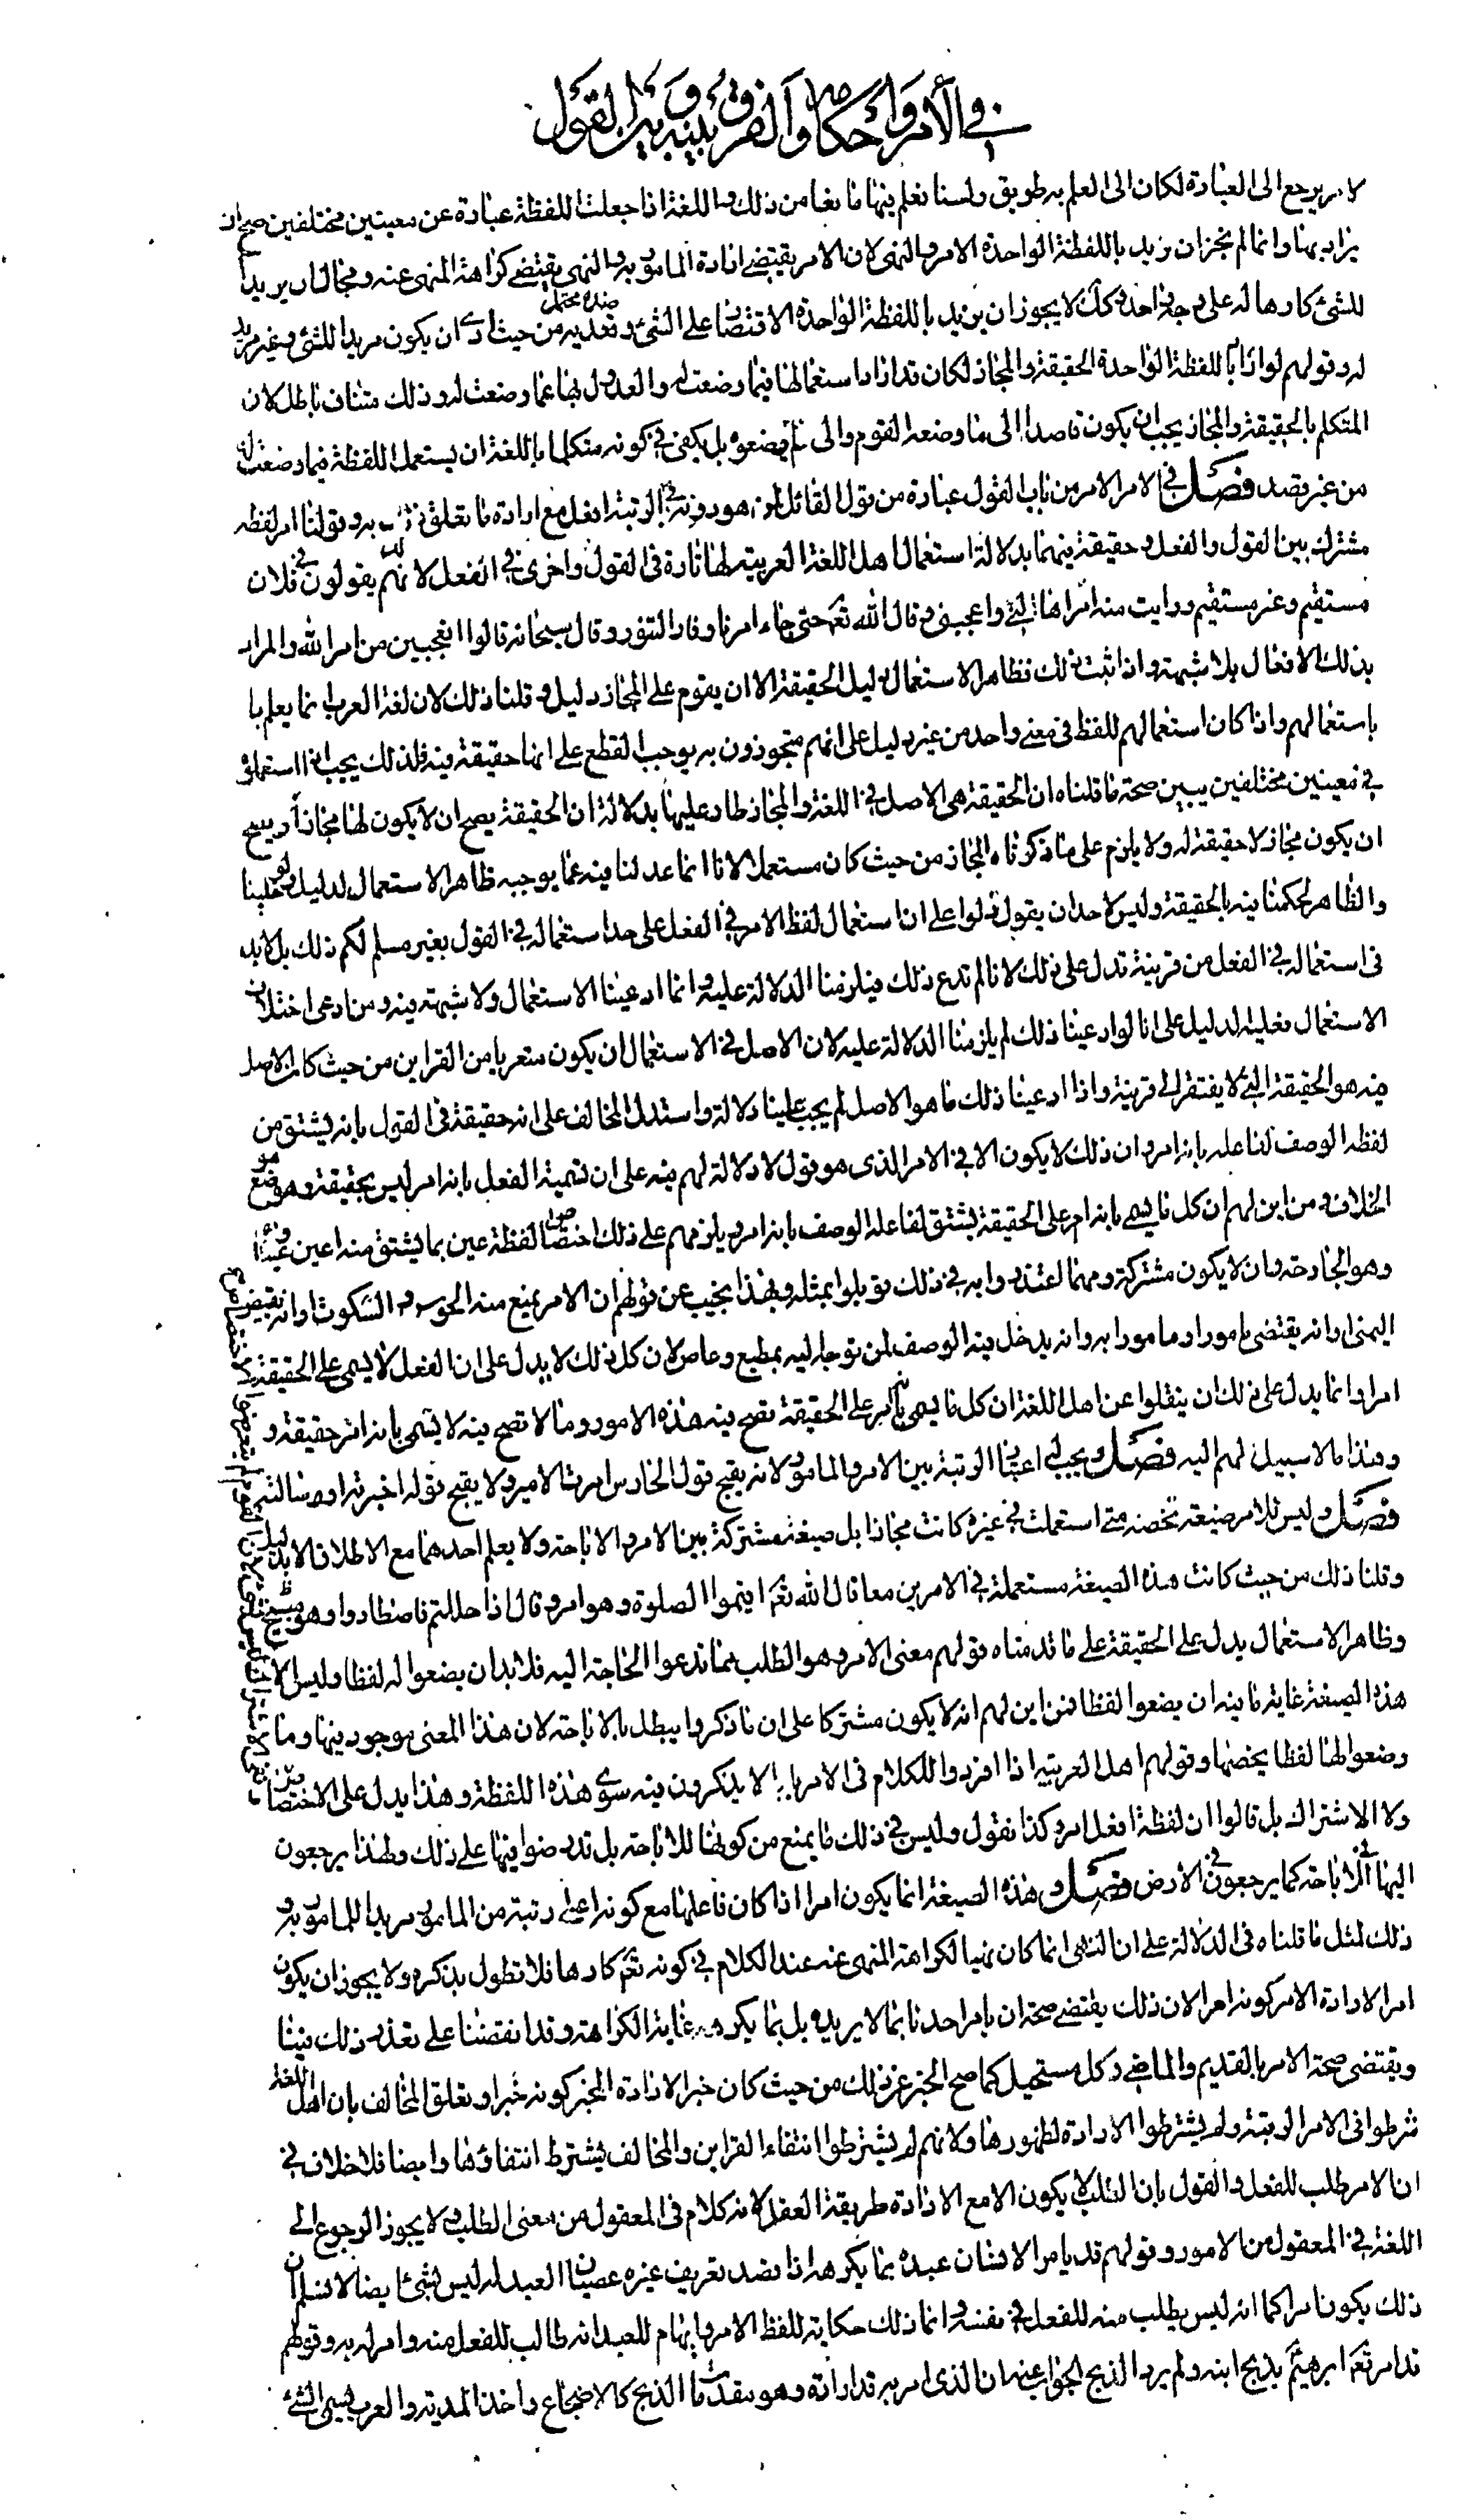 في الأمر وأحكامه والفرق بينه وبين القول
لامر يرجع الى العبادة لكان الى العلم به طريق ولسنا نعلم فيها مانعا من ذلك واللغة اذا جعلت اللفظة عبارة عن معنيين مختلفين صح ان
يراد بهما وانما لم يجز ان يريد باللفظة الواحدة الامر والنهى لان الامر يقتضى ارادة المامور به والنهى يقتضى كراهة المنهى عنه ومحال ان يريد
للشئ كارها له على وجه واحد وكك لا يجوز ان يريد باللفظة الواحدة الاقتصار على الشئ وتعديه من حيث ان يكون مريدا للشئ وغير مريد
له وقولهم لو اراد باللفظة الواحدة الحقيقة والمجاز لكان قد اراد استعمالها فيما وضعت له والعدول بها عما وضعت له وذلك متناف باطل لان
المتكلم بالحقيقة والمجاز يجب ان يكون قاصدا الى ما وضعه القوم والى ما لم يضعوه بل يكفى في كونه متكلما باللغة ان يستعمل اللفظة فيما وضعت له
من غير قصد فصل في الامر الامر من باب القول عبارة من قول القائل لمن هو دونه في الرتبة افعل مع ارادة ما تعلق به وقولنا امر لفظه
مشترك بين القول والفعل وحقيقة فيهما بدلالة استعمال اهل اللغة العربية لها تارة في القول واخرى في الفعل لانهم يقولون فلان
مستقيم وغير مستقيم ورايت منه امرا هالنى واعجبنى وقال الله تعم حتى جاء امرنا وفار التنور وقال سبحانه قالوا اتعجبين من امر الله والمراد
بذلك الافعال بلا شبهة واذا ثبت ذلك فظاهر الاستعمال دليل الحقيقة الا ان يقوم على المجاز دليل وقلنا ذلك لان لغة العرب انما يعلم با
باستعمالهم واذا كان استعمالهم للفظ في معنى واحد من غير دليل على انهم متجوزون به يوجب القطع على انها حقيقة فيه فلذلك يجب اذا استعملوه
في معنيين مختلفين يبين صحة ما قلناه ان الحقيقة هي الاصل في اللغة والمجاز طار عليها بدلالة ان الحقيقة يصح ان لا يكون لها مجازا ويصح
ان يكون مجاز لا حقيقة له ولا يلزم على ما ذكرناه المجاز من حيث كان مستعملا لانا انما عدلنا فيه عما يوجبه ظاهر الاستعمال لدليل ولو خلينا
والظاهر لحكمنا فيه بالحقيقة وليس لاحد ان يقول دلوا على ان استعمال لفظ الامر في الفعل على حد استعماله في القول بغير مسلم لكم ذلك بل لابد
في استعماله في الفعل من قرينة تدل على ذلك لانا لم ندع ذلك فيلزمنا الدلالة عليه وانما ادعينا الاستعمال ولا شبهة فيه ومن ادعى اختلاف
الاستعمال فعليه الدليل على انا لو ادعينا ذلك لم يلزمنا الدلالة عليه لان الاصل في الاستعمال ان يكون متعريا من القراين من حيث كان الاصل
فيه هو الحقيقة التي لا يفتقر الى قرينة واذا ادعينا ذلك ما هو الاصل لم يجب علينا دلالة واستدل المخالف على انه حقيقة في القول بانه يشتق من
لفظه الوصف لفاعله بانه امر وان ذلك لا يكون الا في الامر الذى هو قول لا دلالة لهم فيه على ان تسمية الفعل بانه امر ليس بحقيقة وهو موضع
الخلاف ومن اين لهم ان كل ما يسمى بانه امر على الحقيقة يشتق لفاعله الوصف بانه امر ويلزمهم على ذلك اختصاص لفظة عين بما يشتق منه اعين وعيناء
وهو الجارحة وان لا يكون مشتركة ومهما اعتذروا به في ذلك قوبلوا بمثله وبهذا يجيب عن قولهم ان الامر يمنع منه الخرس والسكوت وانه نقيض
النهى وانه يقتضى مامورا ومامورا به وانه يدخل فيه الوصف لمن توجه اليه بمطيع وعاص لان كل ذلك لا يدل على ان الفعل لا يسمى على الحقيقة
امرا وانما يدل على ذلك ان ينقلوا عن اهل اللغة ان كل ما يسمى بانه امر على الحقيقة تصح فيه هذه الامور وما لا تصح فيه لا يسمى بانه امر حقيقة و
وهذا ما لا سبيل لهم اليه فصل ويجب اعتبار الرتبة بين الامر والمامور لانه يقبح قول الحارس امرت الامير ولا يقبح قوله اخبرته او سالته
فصل وليس للامر صيغة تخصه متى استعملت في غيره كانت مجازا بل صيغة مشتركة بين الامر والاباحة ولا يعلم احدهما مع الاطلاق الا بدليل
وقلنا ذلك من حيث كانت هذه الصيغة مستعملة في الامرين معا قال الله تعم اقيموا الصلوة وهو امر وقال اذا حللتم فاصطادوا وهو مبيح
وظاهر الاستعمال يدل على الحقيقة على ما قدمناه قولهم معنى الامر وهو الطلب مما تدعوا الحاجة اليه فلابد ان يضعوا له لفظا وليس الا
هذه الصيغة غاية ما فيه ان يضعوا لفظا فمن اين لهم انه لا يكون مشتركا على ان ما ذكروا يبطل بالاباحة لان هذا المعنى موجود فيها وما
وضعوا لها لفظا يخصها وقولهم اهل العربية اذا افردوا للكلام في الامر بابا لا يذكرون فيه سوى هذه اللفظة وهذا يدل على الاختصاص
ولا الاشتراك بل قالوا ان لفظة افعل امر وكذا نقول وليس في ذلك ما يمنع من كونها للاباحة بل قد رضوا فيها على ذلك ولهذا يرجعون
اليها في الاباحة كما يرجعون في الارض فصل وهذه الصيغة انما يكون امرا اذا كان فاعلها مع كونه اعلى رتبة من المامور مريدا للمامور به و
ذلك لمثل ما قلناه في الدلالة على ان النهى انما كان نهيا لكراهة المنهى عنه عند الكلام في كونه تعم كارها فلا نطول بذكره ولا يجوز ان يكون
امرا لارادة الامر كونه امرا لان ذلك يقتضى صحة ان يامر احدنا بما لا يريده بل بما يكرهه غاية الكراهة وقد انقضنا على تعذر ذلك فينا
ويقتضى صحة الامر بالقديم والماضى وكل مستحيل كما صح الخبر عن ذلك من حيث كان خبرا لارادة المخبر كونه خبرا وتعلق المخالف بان اهل اللغة
شرطوا في الامر الرتبة ولم يشترطوا الارادة لظهورها ولانهم لم يشترطوا انتفاء القراين والمخالف يشترط انتفاؤها وايضا فلا خلاف في
ان الامر طلب للفعل والقول بان الطلب لا يكون الا مع الارادة طريقة العقل لانه كلام في المعقول من معنى الطلب ولا يجوز الرجوع الى
اللغة في المعقول من الامور وقولهم قد يامر الانسان عبده بما يكرهه اذا قصد تعريف غيره عصيان العبد له ليس بشئ ايضا لانا لا نسلم ان
ذلك يكون امرا كما انه ليس يطلب منه للفعل في نفسه وانما ذلك حكاية للفظ الامر وايهام للعبد انه طالب للفعل منه وامر له به وقولهم
قد امر تعم ابرهيم بذبح ابنه ولم يرد الذبح الجواب عنه ان الذى امر به قد اراده وهو مقدمات الذبح كالاضجاع واخذ المدية والعرب يسمى الشئ